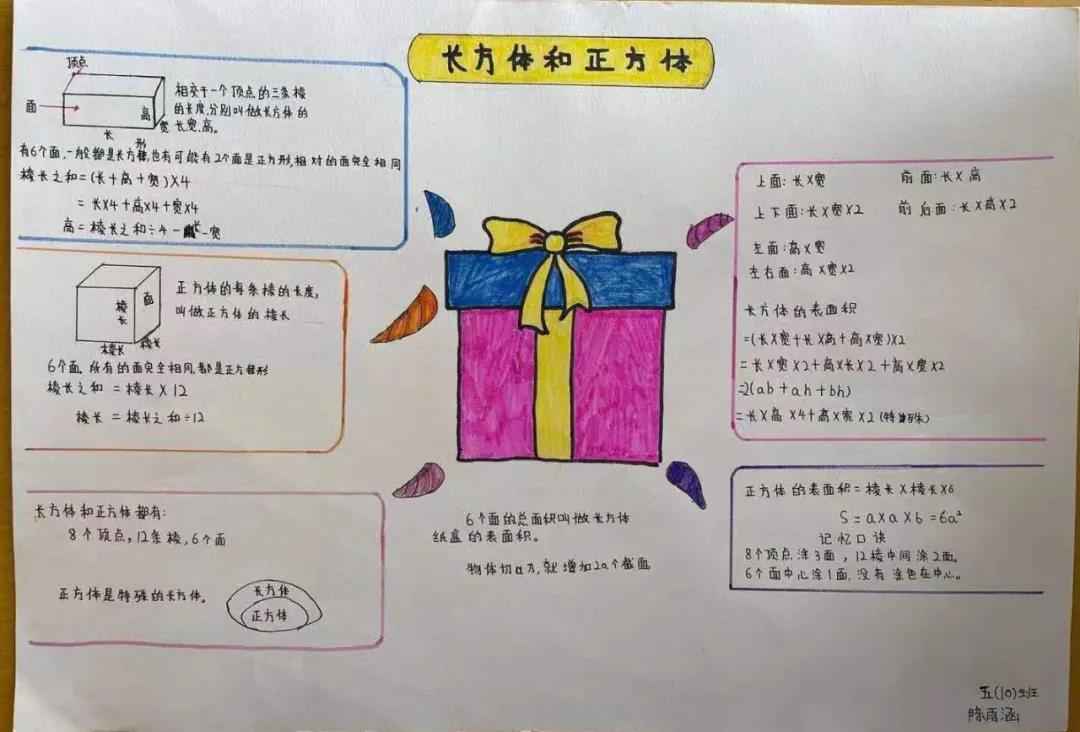 长方体和正方体
顶点
面
高
宽
长
相交于一个顶点的三条棱
的长度,分别叫做长方体的
长、宽、高。
形
有6个面,一般都是长方,也有可能有2个面是正方形,相对的面完全相同
棱长之和=(长+高+宽)×4
=长×4+高×4+宽×4
高=棱长之和÷4-长-宽
面
棱长
棱长
棱长
正方体的每条棱的长度,
叫做正方体的棱长
6个面,所有的面完全相同,都是正方形
棱长之和=棱长×12
棱长=棱长之和÷12
长方体和正方体都有:
8个顶点,12条棱,6个面
正方体是特殊的长方体。
长方体
正方体
6个面的总面积叫做长方体
纸盒的表面积。
物体切a刀,就增加2a个截面
上面:长×宽 前面:长×高
上下面:长×宽×2 前后面:长×高×2
左面:高×宽
左右面:高×宽×2
长方体的表面积
=(长×宽+长×高+高×宽)×2
=长×宽×2+高×长×2+高×宽×2
=2(ab+ah+bh)
=长×高×4+高×宽×2(特殊)
正方体的表面积=棱长×棱长×6
S=a×a×6=6a²
记忆口诀
8个顶点涂3面,12棱中间涂2面。
6个面中心涂1面,没有涂色在中心。
五(10)班
陈雨涵